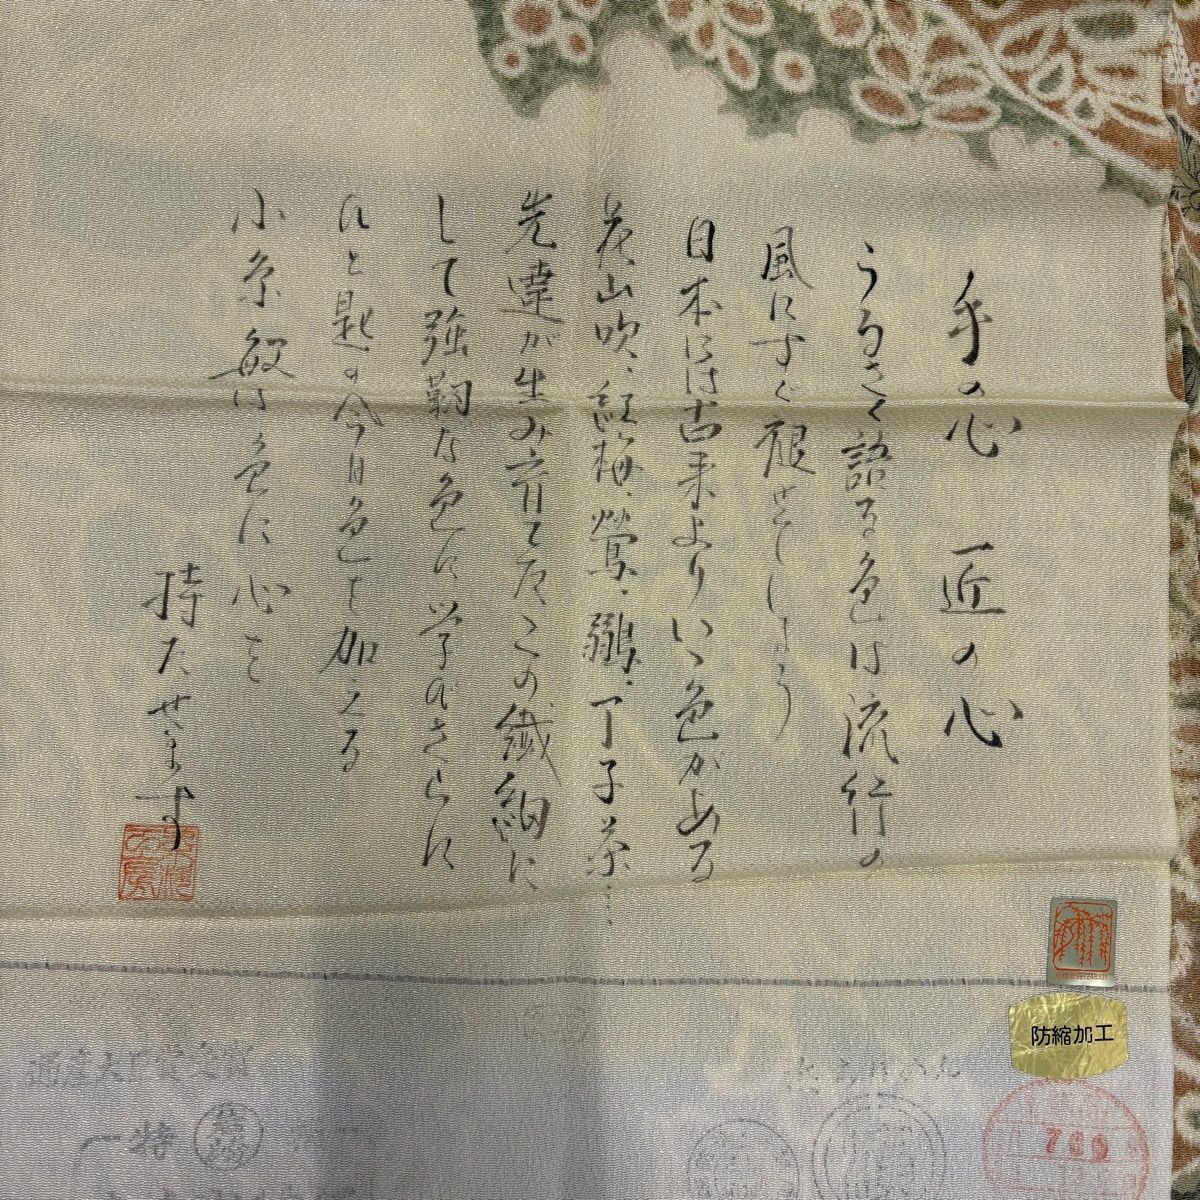 手の心 匠の心
うるさく語る色は流行の
風にすぐ褪せましょう
日本には古来よりいゝ色がある
山吹、紅梅、鶯、丁子茶……
先達が生み育てたこの繊細に
して強靭な色に学びさらに
ひと匙の今日色を加える
小糸敏は色に心を
持たせます
防縮加工
通産大臣賞受賞
特
769